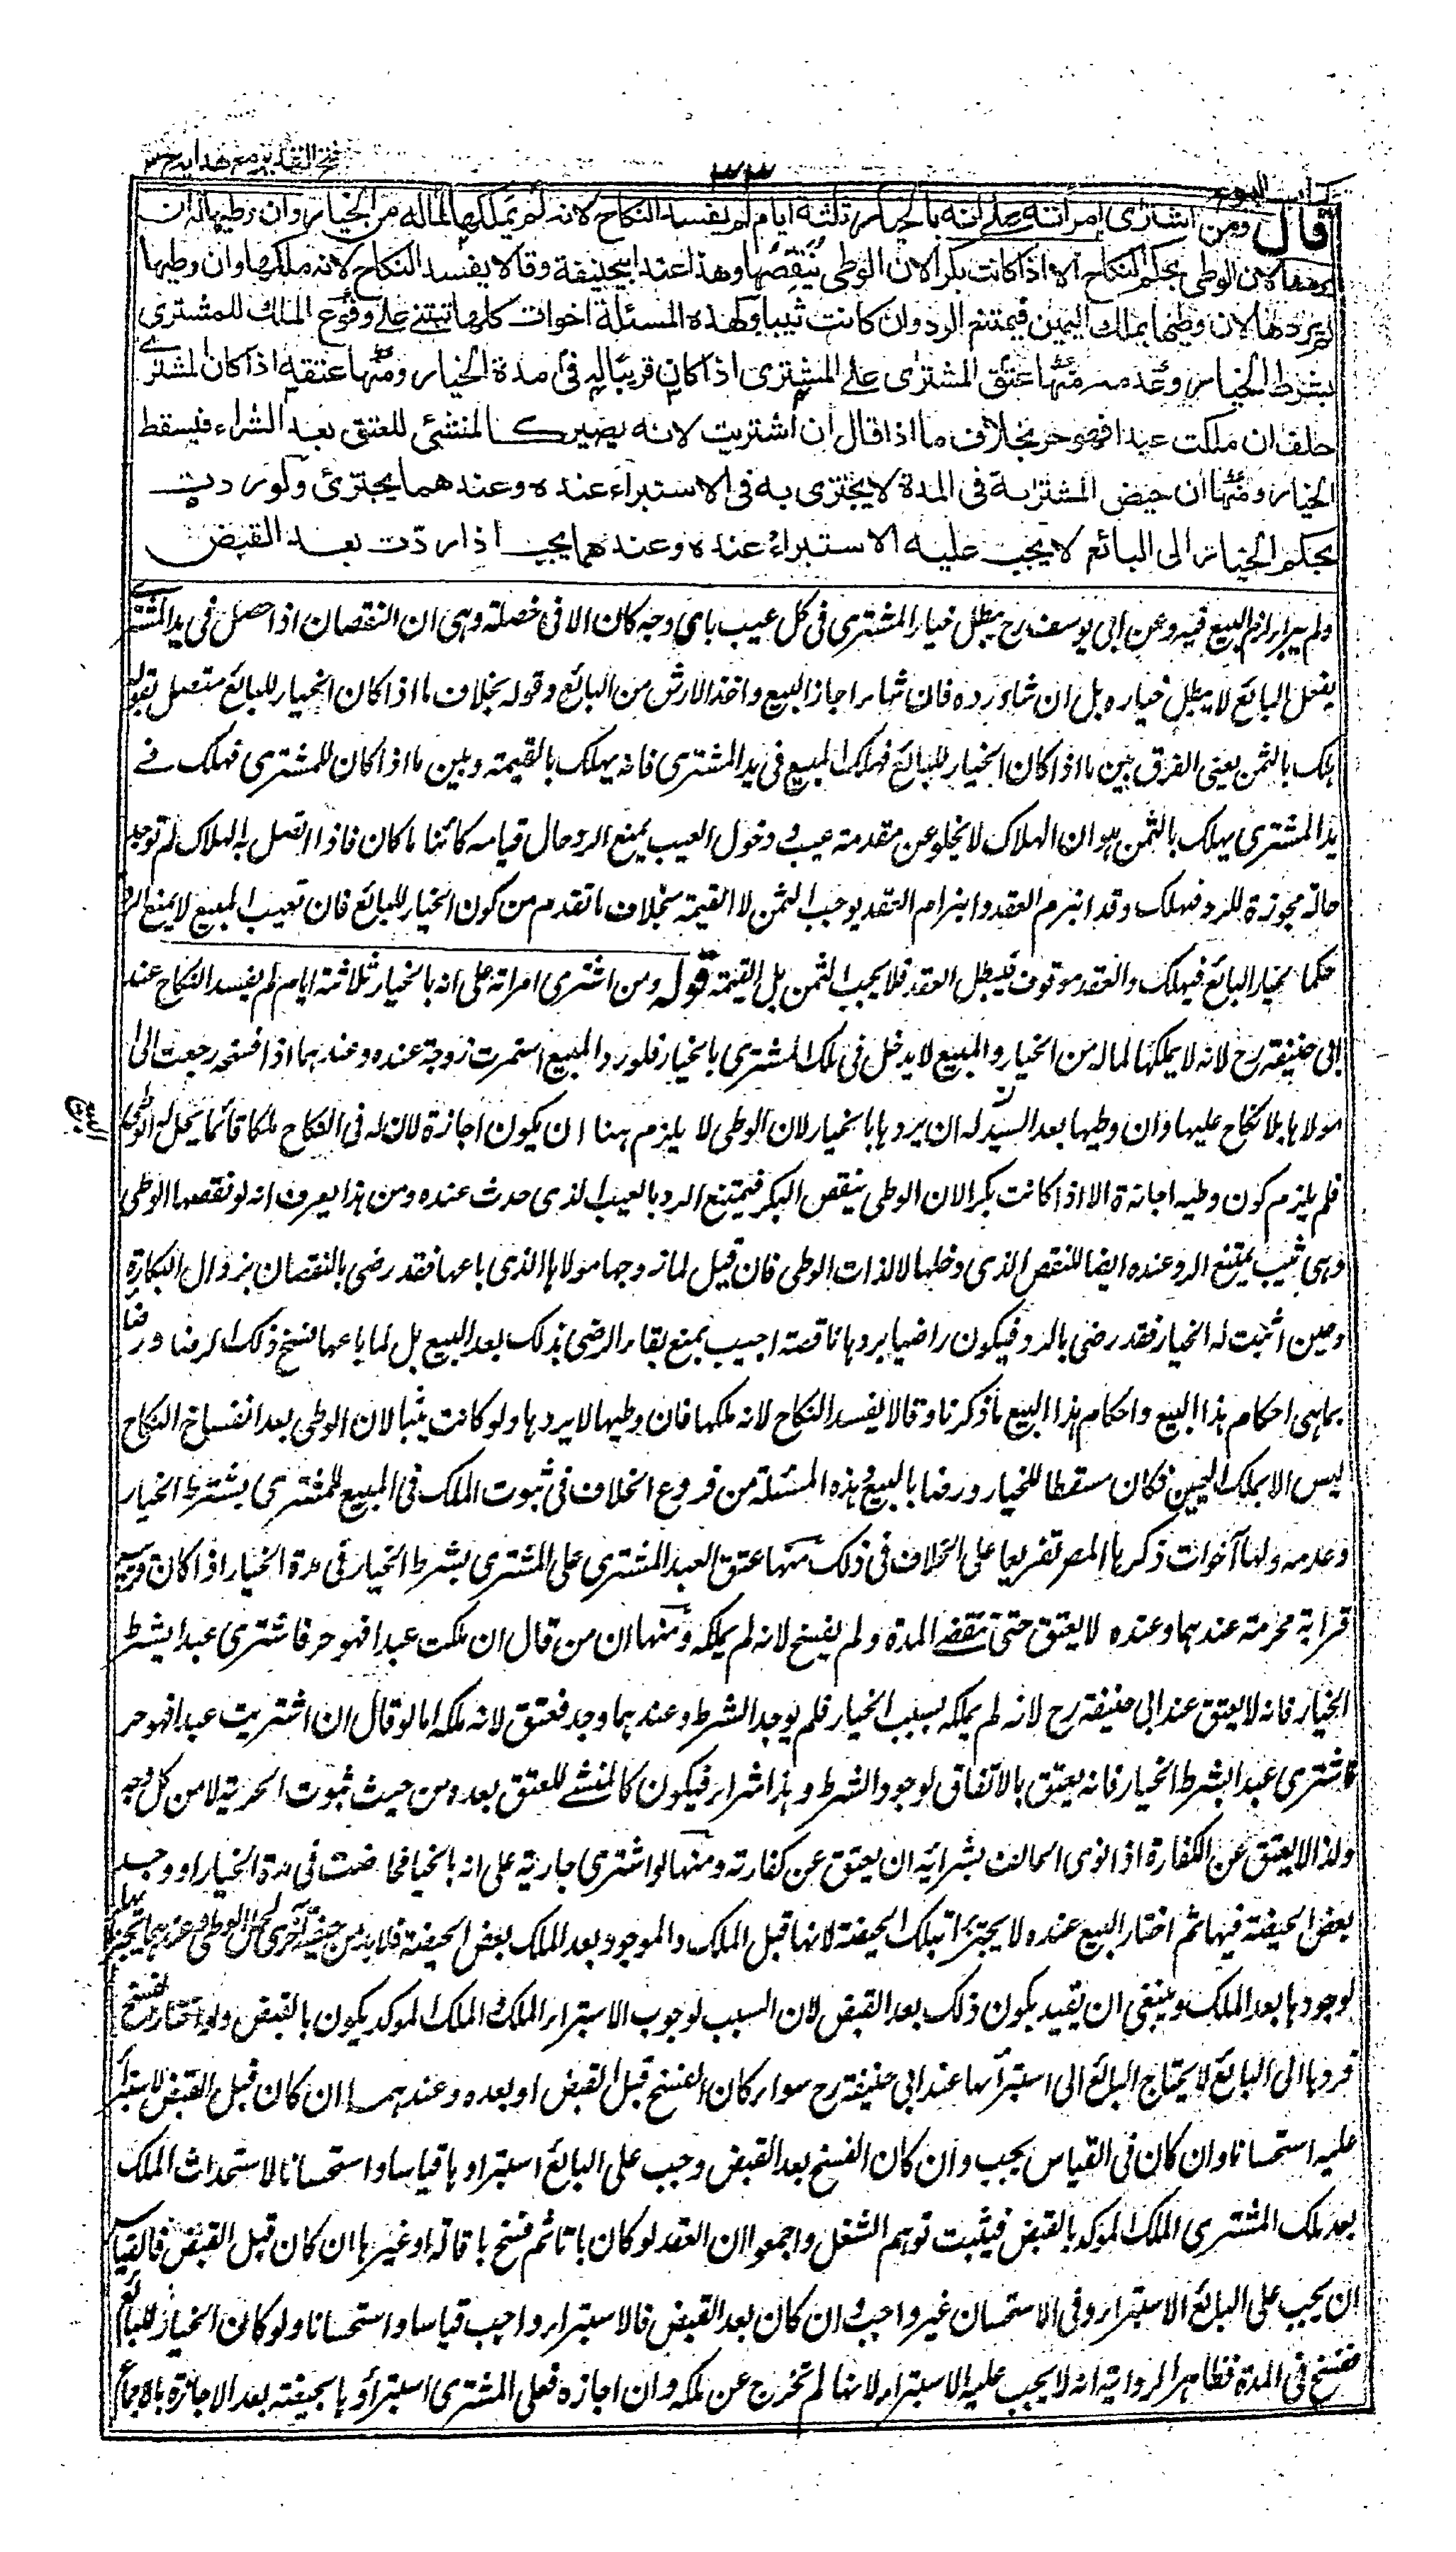 كتاب البيوع
٣٣
فتح القدير مع هدايه ج٣
قال ومن اشترى امرأته على انه بالخيار ثلثة ايام لم يفسد النكاح لانه لم يملكها لماله من الخيار وان وطيها له ان
يردها لان الوطى بحكم النكاح الا اذا كانت بكرا لان الوطى ينقصها وهذا عند ابيحنيفة وقالا يفسد النكاح لانه ملكها وان وطيها
لم يردها لان وطيها بملك اليمين فيمتنع الرد وان كانت ثيبا ولهذه المسئلة اخوات كلها تبتنى على وقوع الملك للمشترى
بشرط الخيار وعدمه منها عتق المشترى على المشترى اذا كان قريبا له فى مدة الخيار ومنها عتقه اذا كان المشترى
حلف ان ملكت عبدا فهو حر بخلاف ما اذا قال ان اشتريت لانه يصير كالمنشئ للعتق بعد الشراء فيسقط
الخيار ومنها ان حيض المشتراة فى المدة لا يجتزى به فى الاستبراء عنده وعندهما يجتزئ ولو ردت
بحكم الخيار الى البائع لا يجب عليه الاستبراء عنده وعندهما يجب اذا ردّت بعد القبض
ولم يبرا لزم البيع فيه وعن ابى يوسف رح يبطل خيار المشترى فى كل عيب باى وجه كان الا فى خصلة وهى ان النقصان اذا حصل فى يد المشترى
بفعل البائع لا يبطل خياره بل ان شاء رده فان شاء اجاز البيع واخذ الارش من البائع وقوله بخلاف ما اذا كان الخيار للبائع متصل بقوله
هلك بالثمن يعنى الفرق بين ما اذا كان الخيار للبائع فهلك المبيع فى يد المشترى فانه يهلك بالقيمة وبين ما اذا كان للمشترى فهلك فى
يد المشترى يهلك بالثمن هو ان الهلاك لا يخلو عن مقدمة عيب ودخول العيب يمنع الرد حال قيامه كائنا ما كان فاذا اتصل به الهلاك لم توجد
حالة مجوزة للرد فهلك وقد انبرم العقد وانبرام العقد يوجب الثمن لا القيمة بخلاف ما تقدم من كون الخيار للبائع فان تعيب المبيع لا يمنع الرد
حكما بخيار البائع فيهلك والعقد موقوف فيبطل العقد فلا يجب الثمن بل القيمة قوله ومن اشترى امراته على انه بالخيار ثلاثة ايام لم يفسد النكاح عند
ابى حنيفة رح لانه لا يملكها لماله من الخيار والمبيع لا يدخل فى ملك المشترى بالخيار فلو رد المبيع استمرت زوجة عنده وعندهما اذا فسخ رجعت الى
مولاها بلا نكاح عليها وان وطيها بعد السيد له ان يردها بالخيار لان الوطى لا يلزم هنا ان يكون اجازة لان له فى النكاح ملكا قائما يحل له الوطى
فلم يلزم كون وطيه اجازة الا اذا كانت بكرا لان الوطى ينقص البكر فيمتنع الرد بالعيب الذى حدث عنده ومن هذا يعرف انه لو نقصها الوطى
وهى ثيب يمتنع الرد عنده ايضا للنقص الذى دخلها لا لذات الوطى فان قيل لما زوجها مولاها الذى باعها فقد رضى بالنقصان بزوال البكارة
وحين اثبت له الخيار فقد رضى بالرد فيكون راضيا بردها ناقصة اجيب بمنع بقاء الرضى بذلك بعد البيع بل لما باعها فسخ ذلك الرضا ورضا
بما هى احكام هذا البيع واحكام هذا البيع ما ذكرنا وقالا يفسد النكاح لانه ملكها فان وطيها لا يردها ولو كانت ثيبا لان الوطى بعد انفساخ النكاح
ليس الا بملك اليمين فكان مسقطا للخيار ورضا بالبيع وهذه المسئلة من فروع الخلاف فى ثبوت الملك فى المبيع للمشترى بشرط الخيار
وعدمه ولها اخوات ذكرها المصر تفريعا على الخلاف فى ذلك منها عتق العبد المشترى على المشترى بشرط الخيار فى مدة الخيار اذا كان قريبه
قرابة محرمة عندهما وعنده لا يعتق حتى تنقضى المدة ولم يفسخ لانه لم يملكه ومنها ان من قال ان ملكت عبدا فهو حر فاشترى عبدا بشرط
الخيار فانه لا يعتق عند ابى حنيفة رح لانه لم يملكه بسبب الخيار فلم يوجد الشرط وعندهما وجد فعتق لانه ملكه اما لو قال ان اشتريت عبدا فهو حر
فاشترى عبدا بشرط الخيار فانه يعتق بالاتفاق لوجود الشرط وهذا شراء فيكون كالمنشئ للعتق بعده من حيث ثبوت الحرية لا من كل وجه
ولذا لا يعتق عن الكفارة اذا نوى الحالف بشرائه ان يعتق عن كفارته ومنها لو اشترى جارية على انه بالخيار فحاضت فى مدة الخيار او وجد
بعض الحيضة فيها ثم اختار البيع عنده لا يجتزئ بتلك الحيضة لانها قبل الملك والموجود بعد الملك بعض الحيضة فلا بد من حيضة اخرى لحل الوطى وعندهما يجتزئ بها
لوجودها بعد الملك وينبغى ان يقيد بكون ذلك بعد القبض لان السبب لوجوب الاستبراء الملك والملك الموكد يكون بالقبض ولو اختار الفسخ
فردها الى البائع لا يحتاج البائع الى استبرائها عند ابى حنيفة رح سواء كان الفسخ قبل القبض او بعده وعندهما ان كان قبل القبض لا استبراء
عليه استحسانا وان كان فى القياس يجب وان كان الفسخ بعد القبض وجب على البائع استبراؤها قياسا واستحسانا لاستحداث الملك
بعد ملك المشترى الملك الموكد بالقبض فيثبت توهم الشغل واجمعوا ان العقد لو كان باتا ثم فسخ باقالة او غيرها ان كان قبل القبض فالقياس
ان يجب على البائع الاستبراء وفى الاستحسان غير واجب وان كان بعد القبض فالاستبراء واجب قياسا واستحسانا ولو كان الخيار للبائع
ففسخ فى المدة فظاهر الرواية انه لا يجب عليه الاستبراء لانها لم تخرج عن ملكه وان اجازه فعلى المشترى استبراؤها بحيضة بعد الاجازة بالاجماع